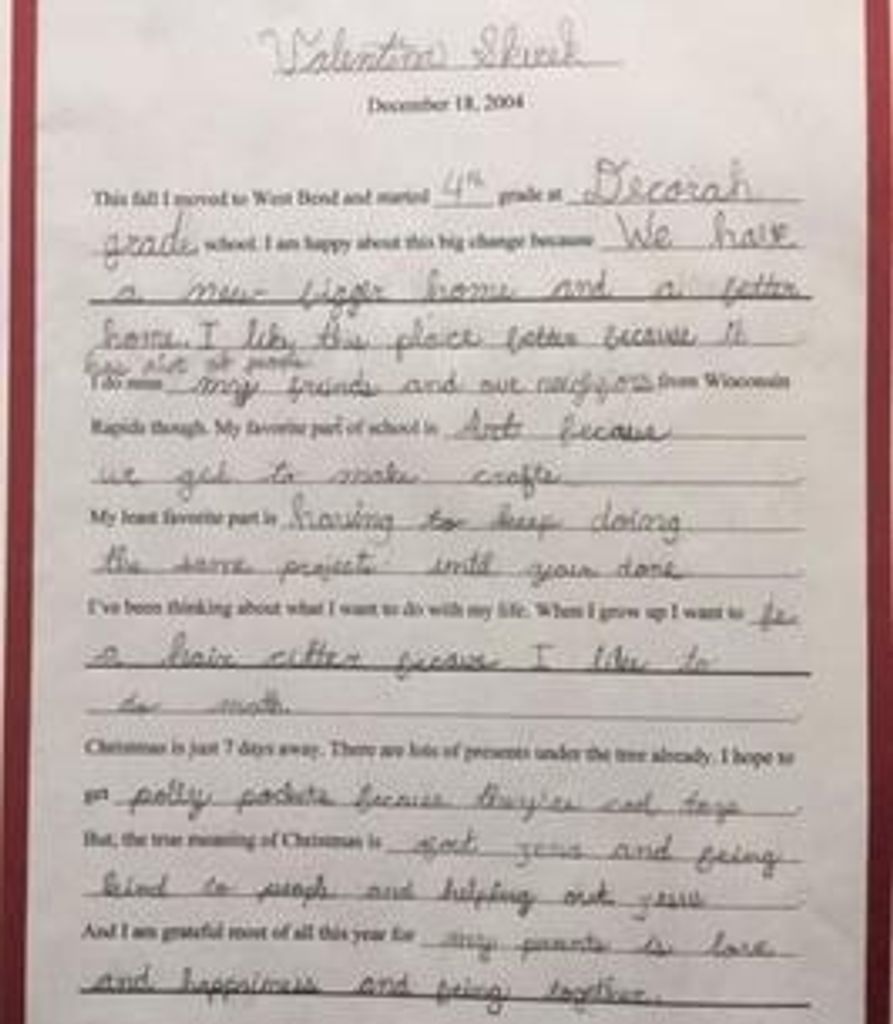 Valentina Skvek
December 18, 2004
This fall I moved to West Bend and started 4th grade at Decorah
grade school. I am happy about this big change because We have
a new bigger home and a better
home. I like this place better because it
has alot of
I do miss my frinds and our neighbors from Wisconsin
Rapids though. My favorite part of school is Art because
we get to make crafts
My least favorite part is having to keep doing
the same project until your done
I've been thinking about what I want to do with my life. When I grow up I want to be
a hair cutter because I like to
do math.
Christmas is just 7 days away. There are lots of presents under the tree already. I hope to
get polly pockets because they're cool toys
But, the true meaning of Christmas is and being
kind to people and helping out
And I am grateful most of all this year for my parents is love
and happiness and being together.